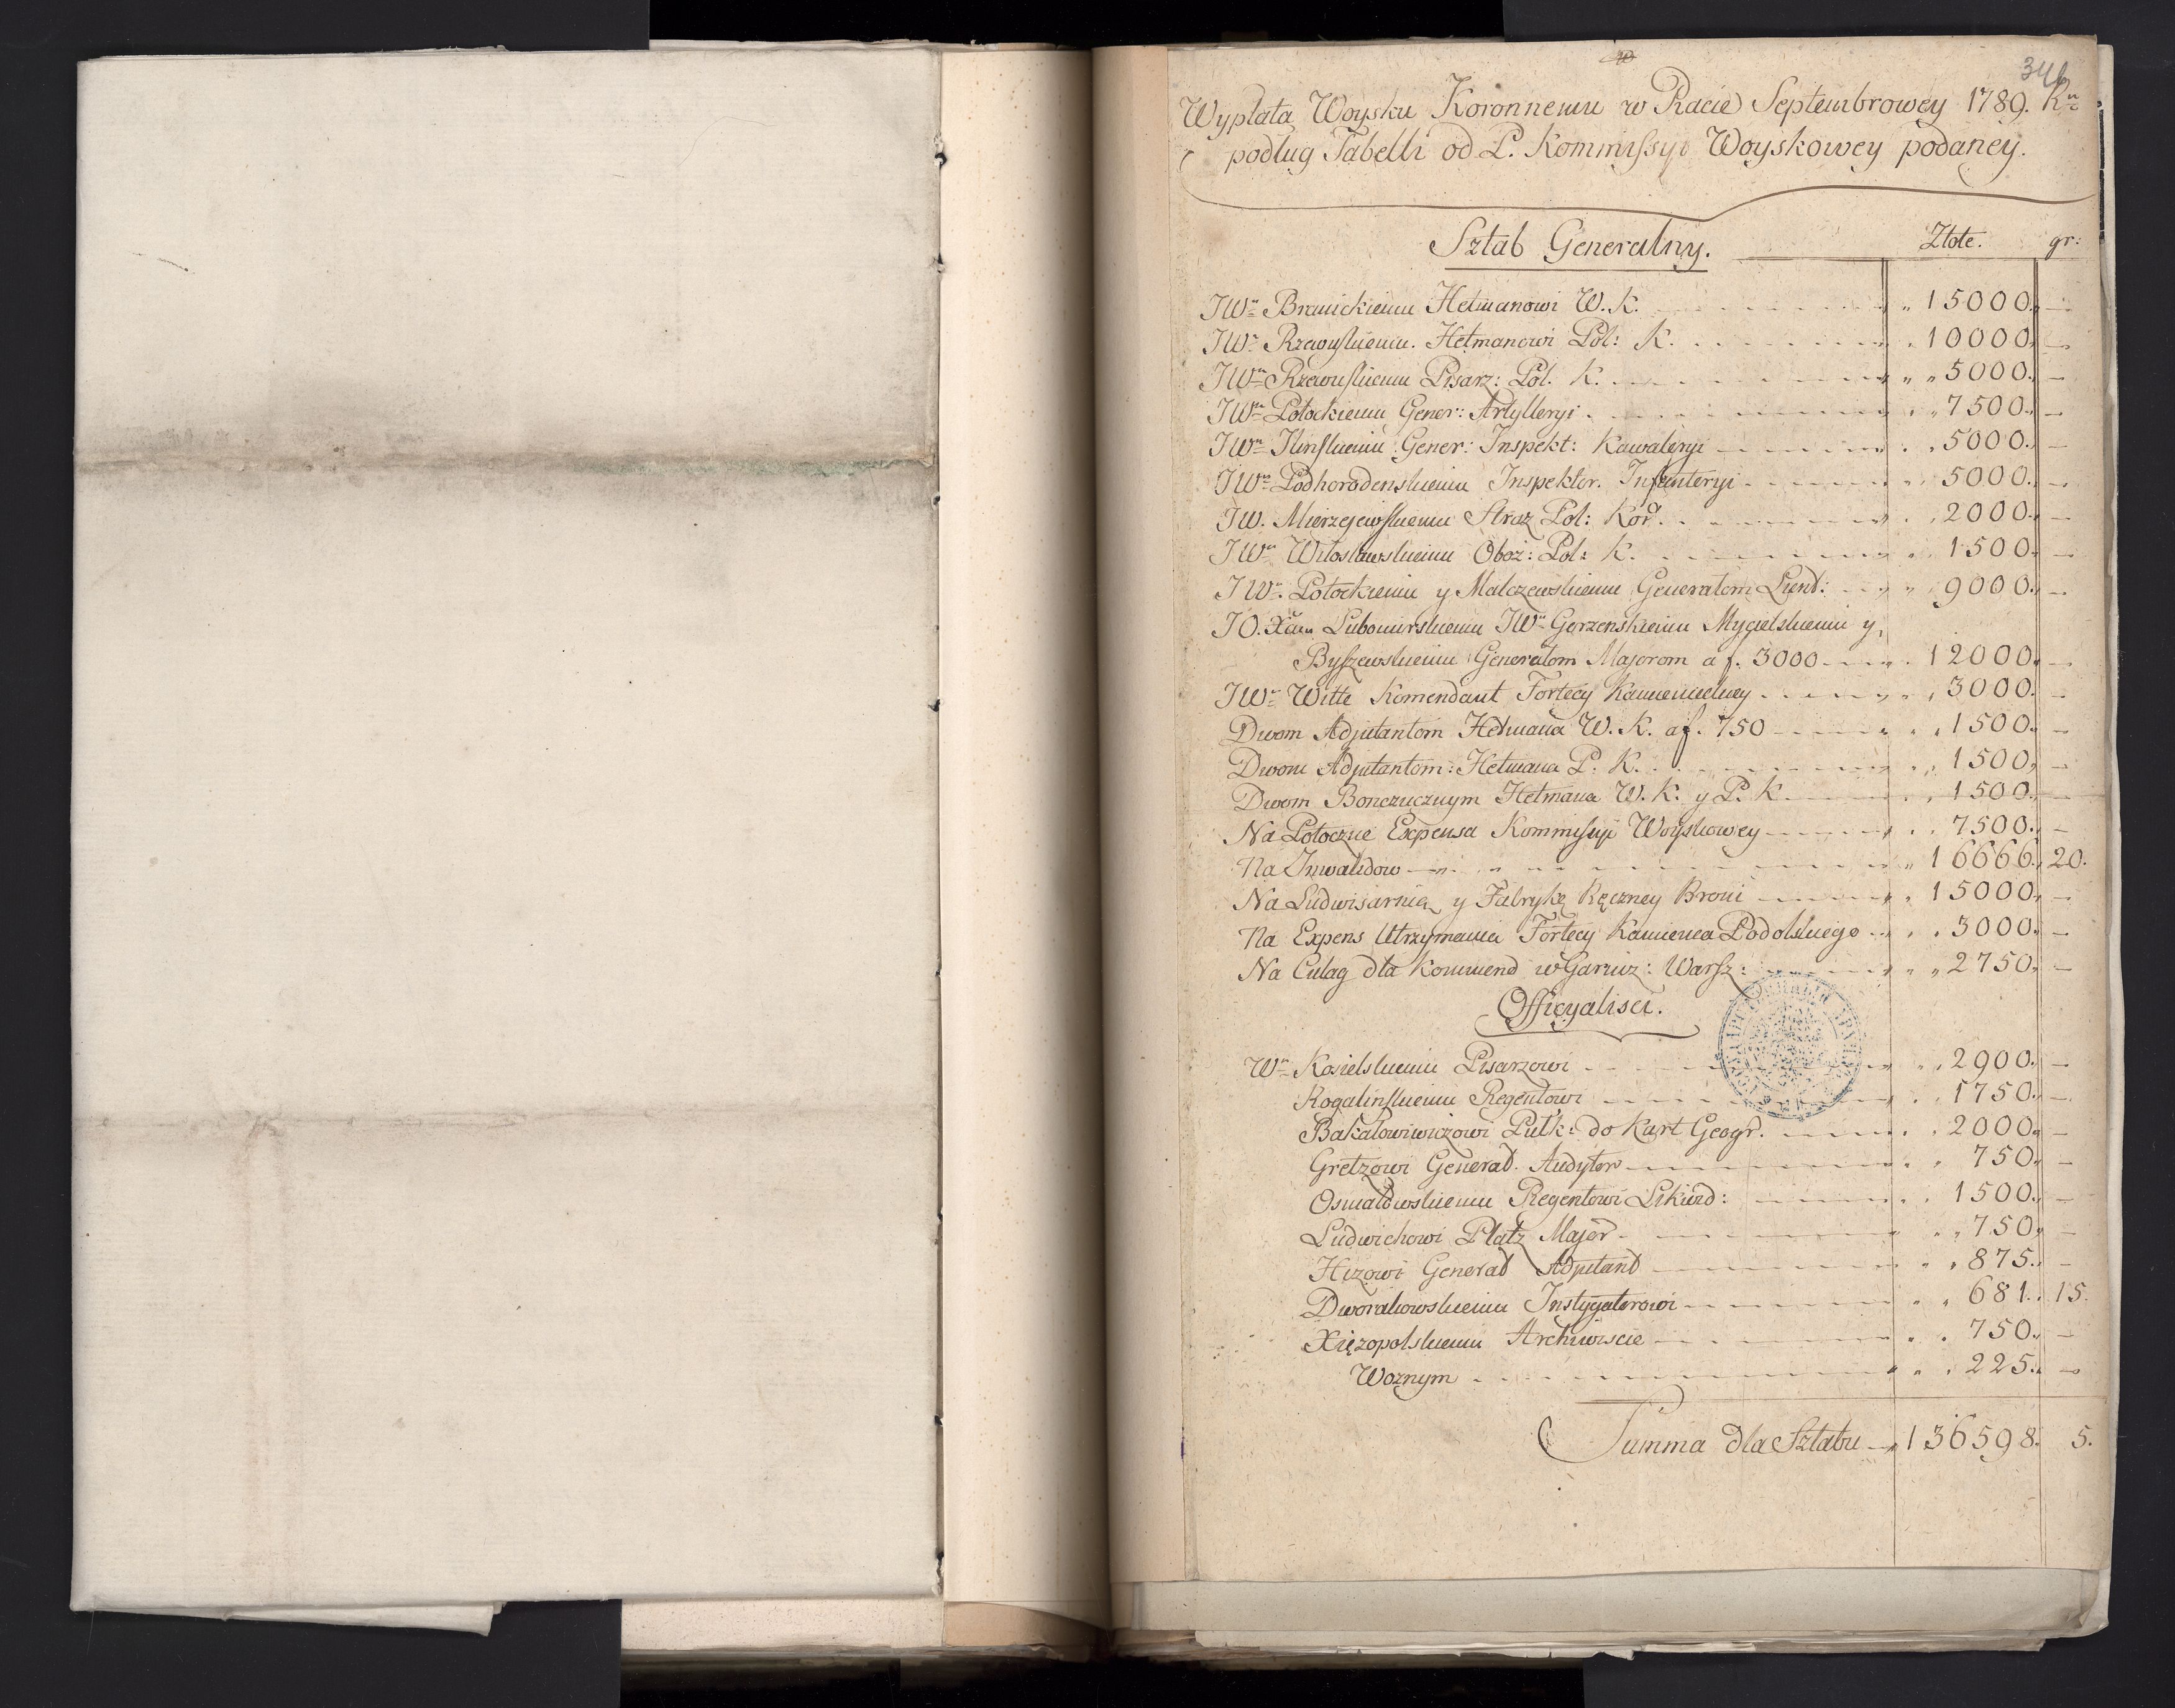 346
Wypłata Woysku Koronnemu w Racie Septembrowey 1789. Ru
podług Tabelli od P. Kommissyi Woyskowey podaney.
Sztab Generalny. Złote. gr:
JWu Branickiemu Hetmanowi W. K. 15000. —
JWu Rzewuskiemu Hetmanowi Pol: K. 10000. —
JWu Rzewuskiemu Pisarz: Pol. K. 5000. —
JWu Potockiemu Gener: Artylleryi 7500. —
JWu Ilinskiemu Gener: Inspekt: Kawaleryi 5000. —
JWu Podhorodenskiemu Inspektor. Infanteryi 5000. —
JW. Mierzejewskiemu Straz Pol: Kor. 2000. —
JWu Witosławskiemu Oboz: Pol: K. 1500. —
JWu Potockiemu y Malczewskiemu Generałom Lient: 9000. —
JO. Xciu Lubomirskiemu JWu Gorzenskiemu Mycielskiemu y
Byszewskiemu Generałom Majorom a f. 3000 12000. —
JWu Witte Komendant Fortecy Kamienieckiey 3000. —
Dwom Adjutantom Hetmana W. K. a f. 750 1500. —
Dwom Adjutantom: Hetmana P. K. 1500. —
Dwom Bonczucznym Hetmana W. K. y P. K. 1500. —
Na Potoczne Expensa Kommissyi Woyskowey 7500. —
Na Inwalidow 16666. 20.
Na Ludwisarnią y Fabrykę Ręczney Broni 15000. —
Na Expens Utrzymania Fortecy Kamienca Podolskiego 3000. —
Na Culag dla Kommend w Garniz: Warsz: 2750. —
Officyalisci.
Wu Kosielskiemu Pisarzowi 2900. —
Rogalinskiemu Regentowi 1750. —
Bakałowiwiczowi Pułk: do Kart Geogr. 2000. —
Gretzowi Generał. Audytor 750. —
Osmałowskiemu Regentowi Likwid: 1500. —
Ludwichowi Platz Major 750. —
Hizowi Generał Adjutand 875. —
Dworakowskiemu Instygatorowi 681. 15.
Xięzopolskiemu Archiwiscie 750. —
Woznym 225. —
Summa dla Sztabu 136598. 5.